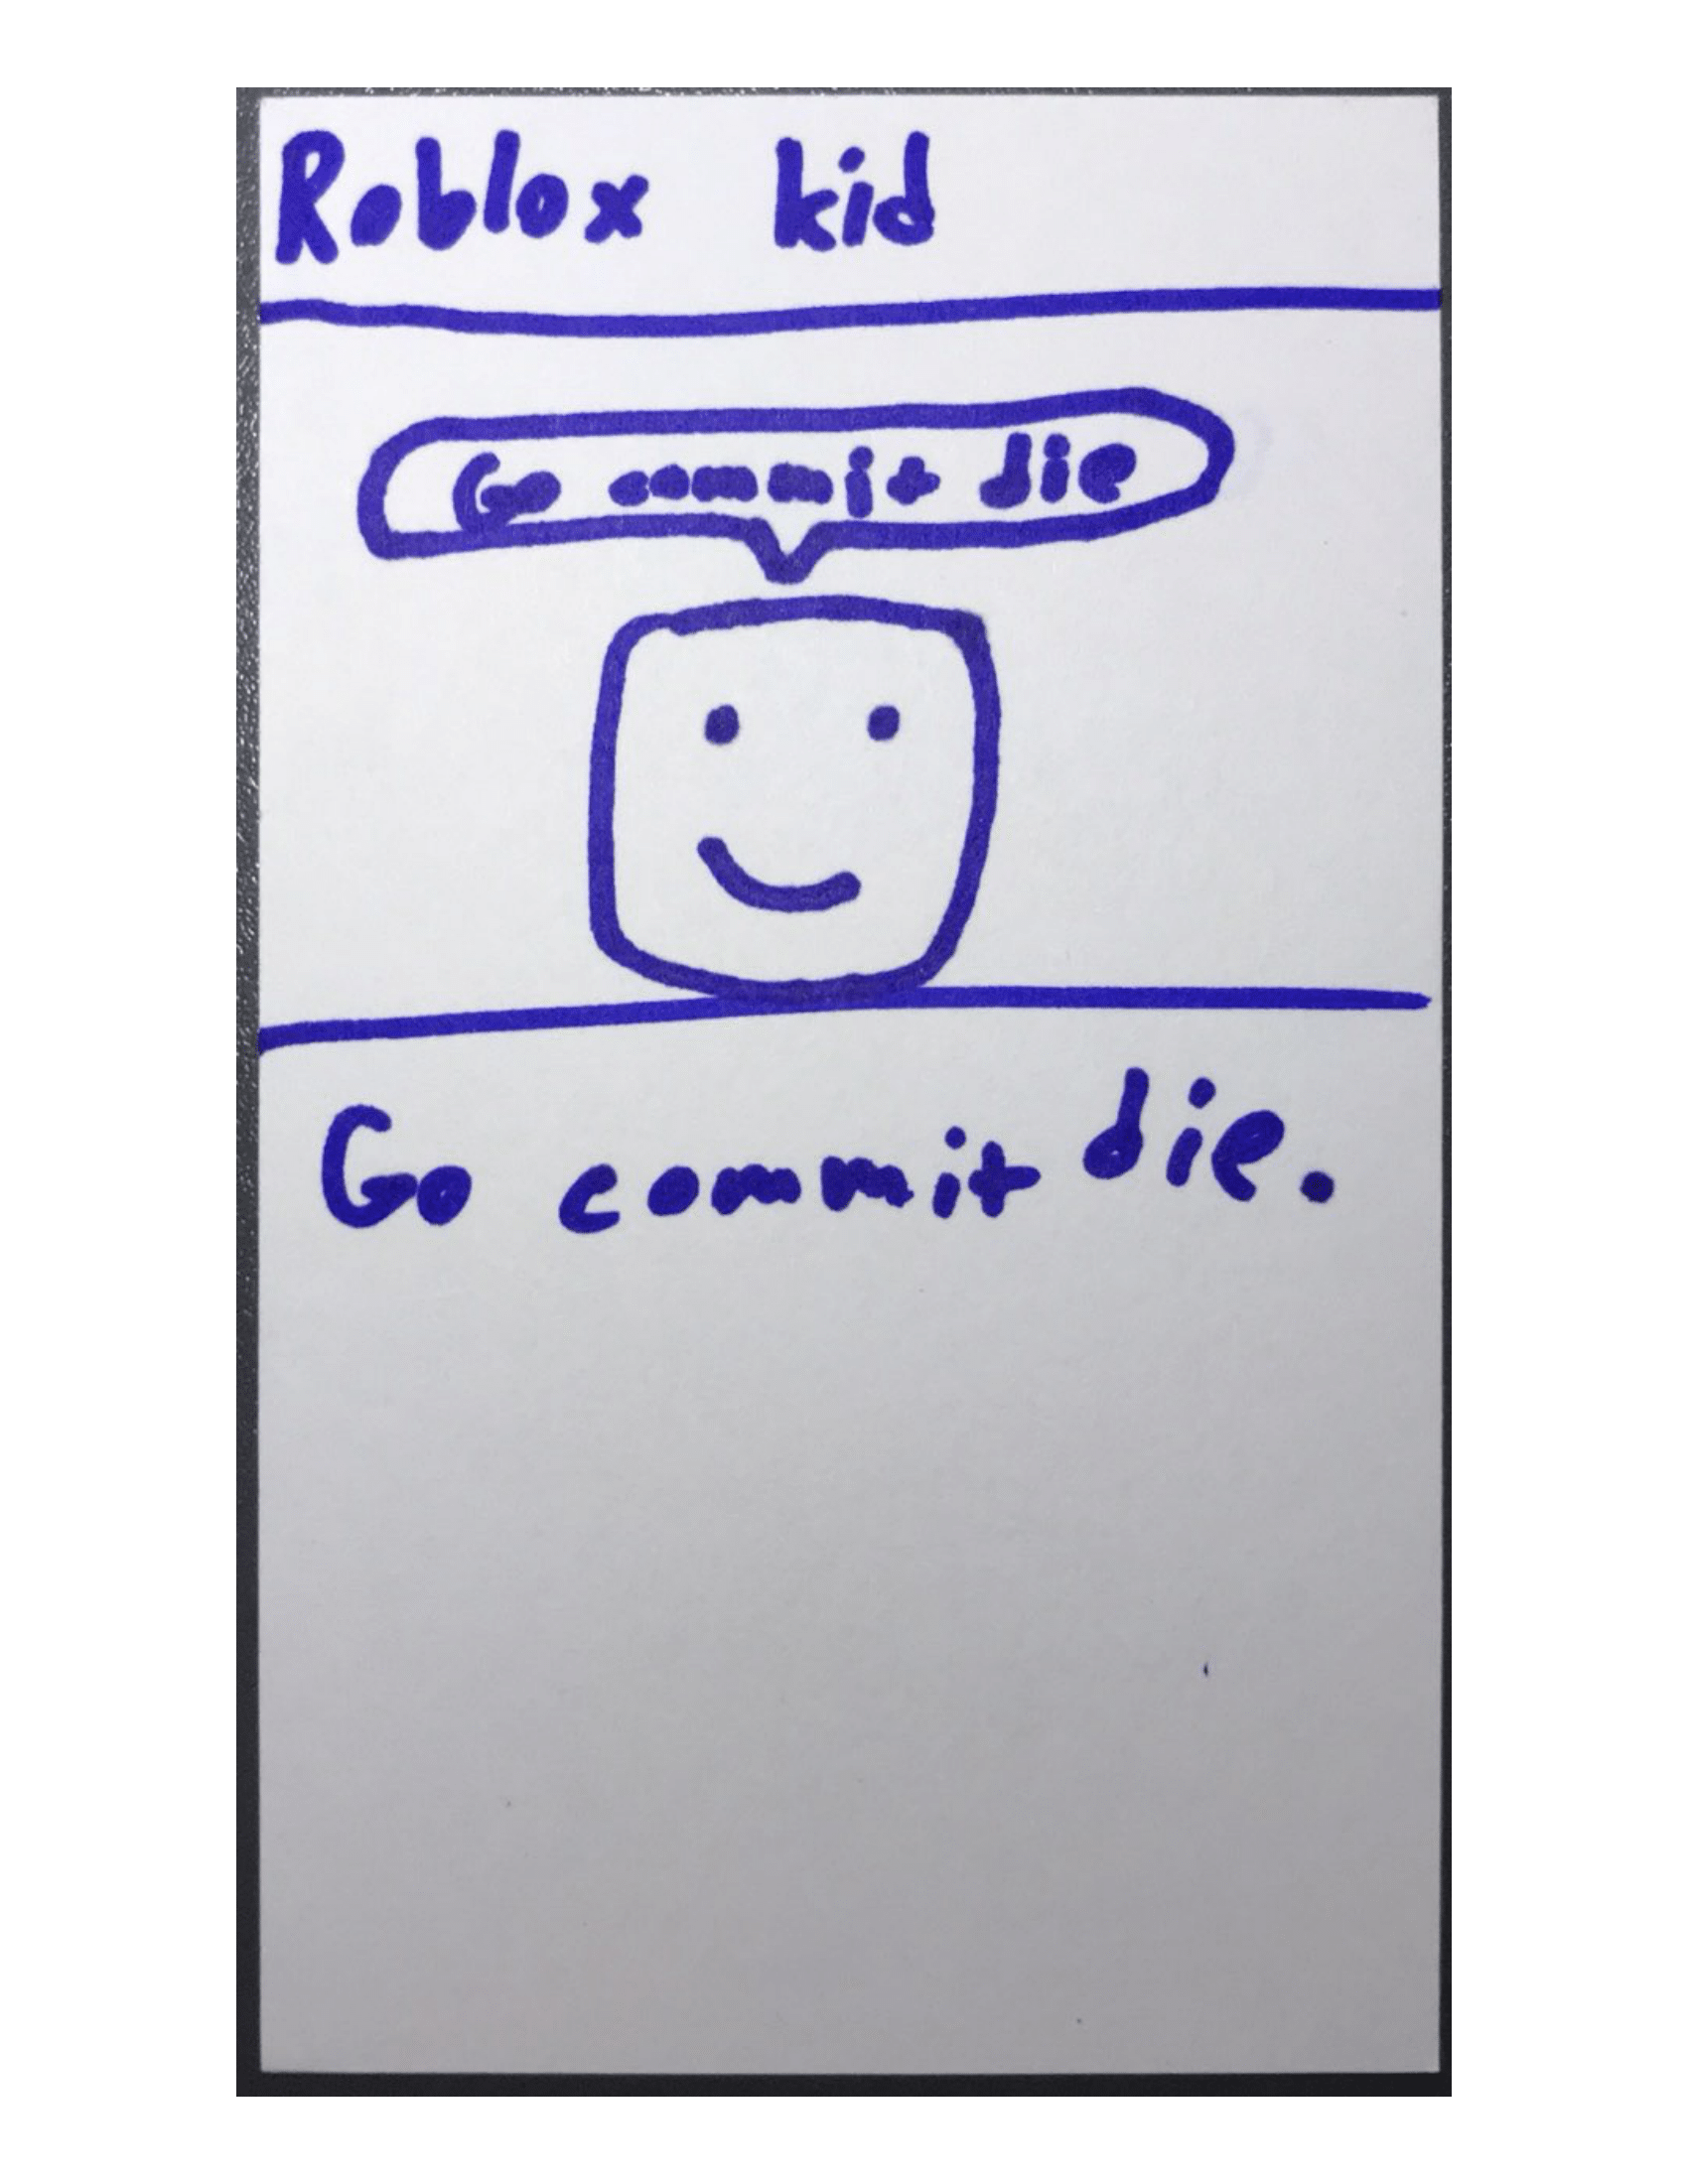 Roblox kid
Go commit die
Go commit die.